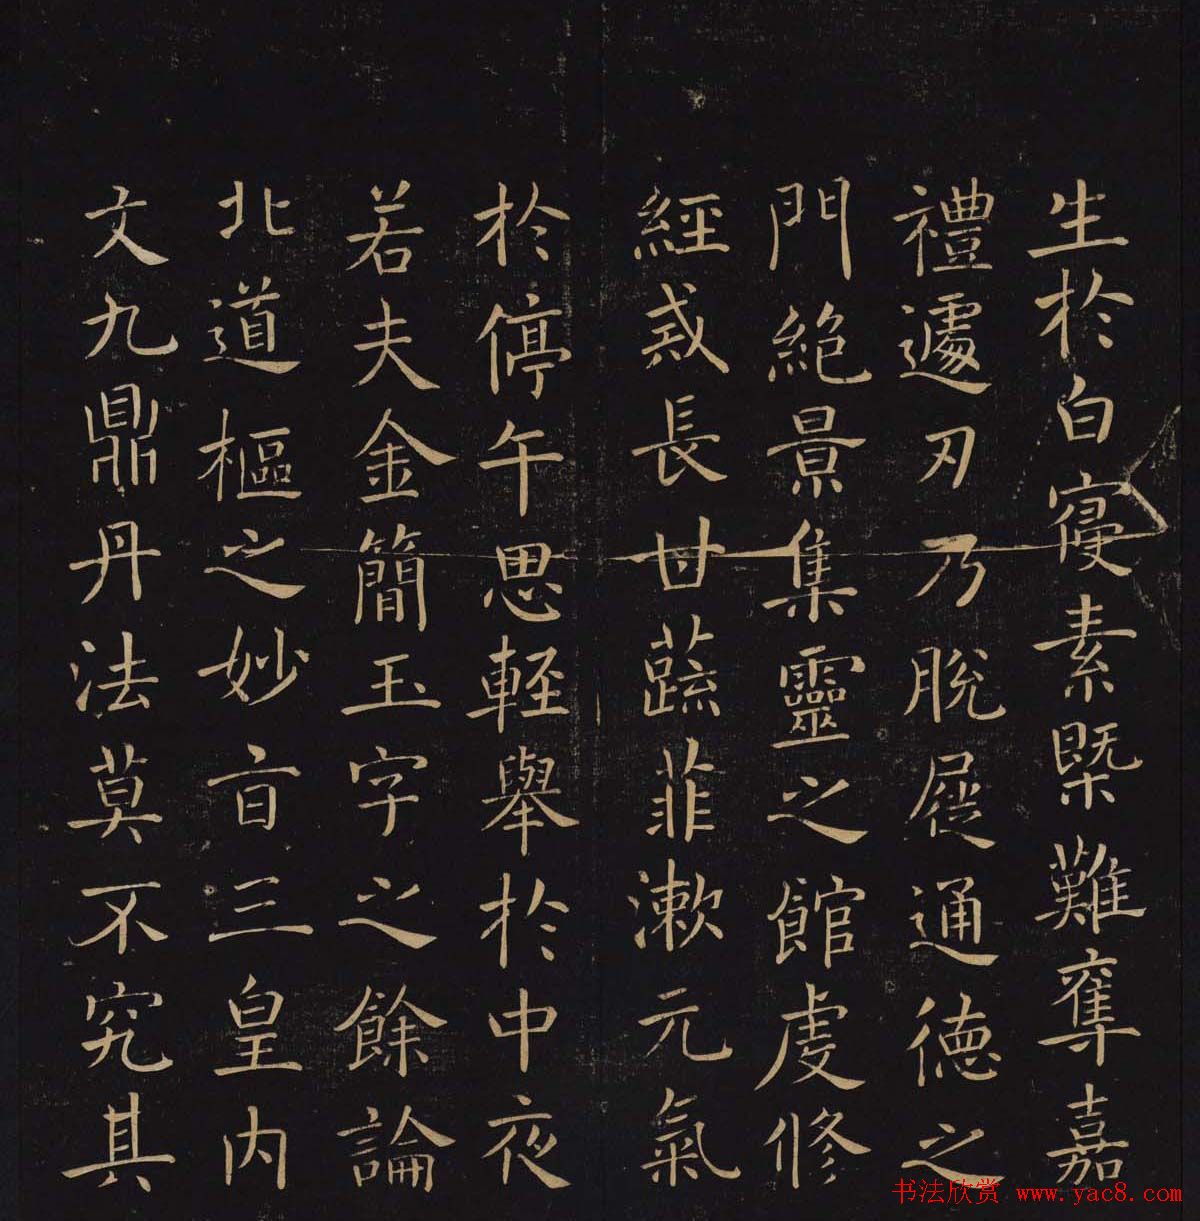 生於白寑素槩難奪嘉
禮遽刃乃脫屣通德之
門絕景集靈之館虔修
經戒長甘蔬菲漱元氣
於停午思輕舉於中夜
若夫金簡玉字之餘論
北道樞之妙旨三皇內
文九鼎丹法莫不究其
书法欣赏 www.yac8.com